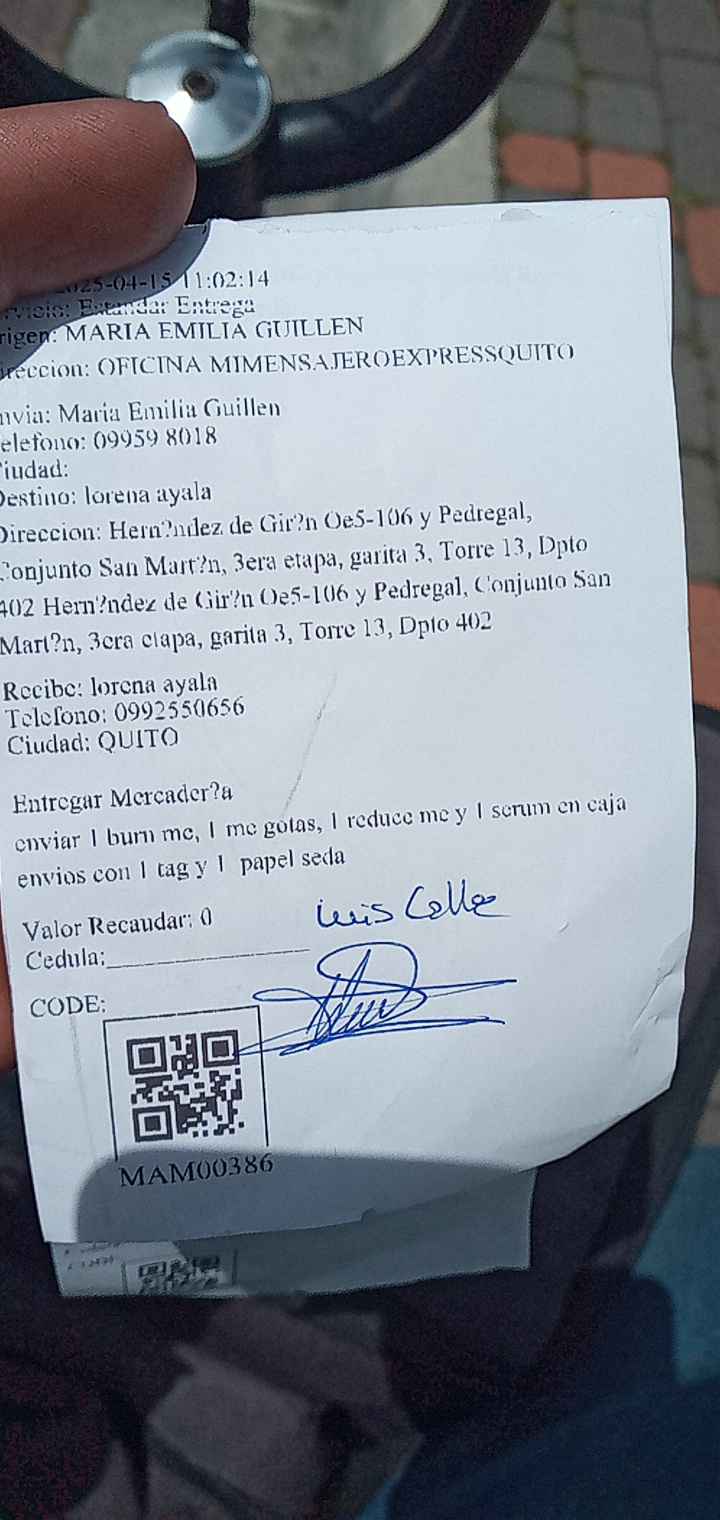 025-04-15 11:02:14
rvicio: Estandar Entrega
rigen: MARIA EMILIA GUILLEN
ireccion: OFICINA MIMENSAJEROEXPRESSQUITO
nvia: Maria Emilia Guillen
elefono: 09959 8018
iudad:
Destino: lorena ayala
Direccion: Hern?ndez de Gir?n Oe5-106 y Pedregal,
Conjunto San Mart?n, 3era etapa, garita 3, Torre 13, Dpto
402 Hern?ndez de Gir?n Oe5-106 y Pedregal, Conjunto San
Mart?n, 3era etapa, garita 3, Torre 13, Dpto 402
Recibe: lorena ayala
Telefono: 0992550656
Ciudad: QUITO
Entregar Mercader?a
enviar 1 burn me, 1 me gotas, 1 reduce me y 1 serum en caja
envios con 1 tag y 1 papel seda
Valor Recaudar: 0
Luis
Cedula:
CODE:
MAM00386